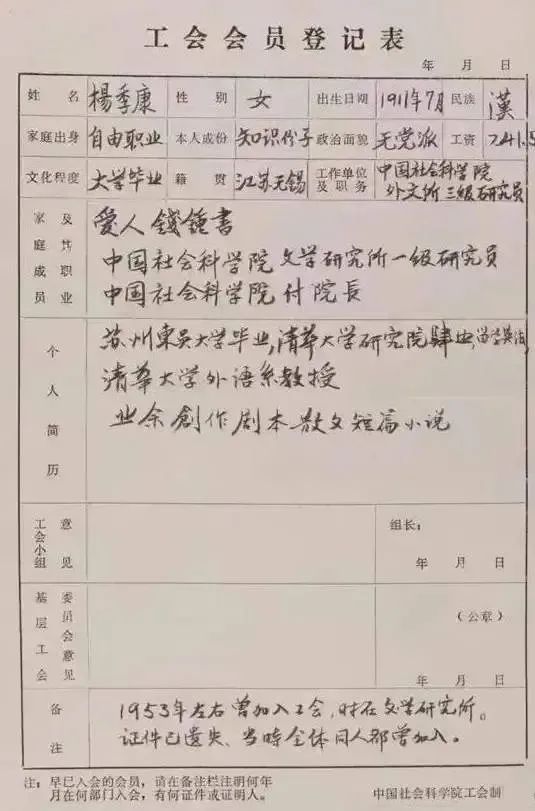 工会会员登记表
年 月 日
姓名 楊季康 性别 女 出生日期 1911年7月 民族 漢
家庭出身 自由职业 本人成份 知识份子 政治面貌 无党派 工资 241.5
文化程度 大学毕业 籍贯 江苏无锡 工作单位及职务 中国社会科学院
外文所 三级研究员
家庭成员及其职业 爱人 錢鍾書
中国社会科学院 文学研究所一级研究员
中国社会科学院 付院長
个人简历 苏州東吳大学毕业,清華大学研究院肆业,留学英法,
清華大学外语系教授
业余創作剧本散文短篇小说
工会小组意见 组长:
年 月 日
基层工会委员会意见 (公章)
年 月 日
备注 1953年左右曾加入工会,时在文学研究所。
证件已遗失、当時全体同人都曾加入。
注:早已入会的会员,请在备注栏注明何年
月在何部门入会,有何证件或证明人。 中国社会科学院工会制